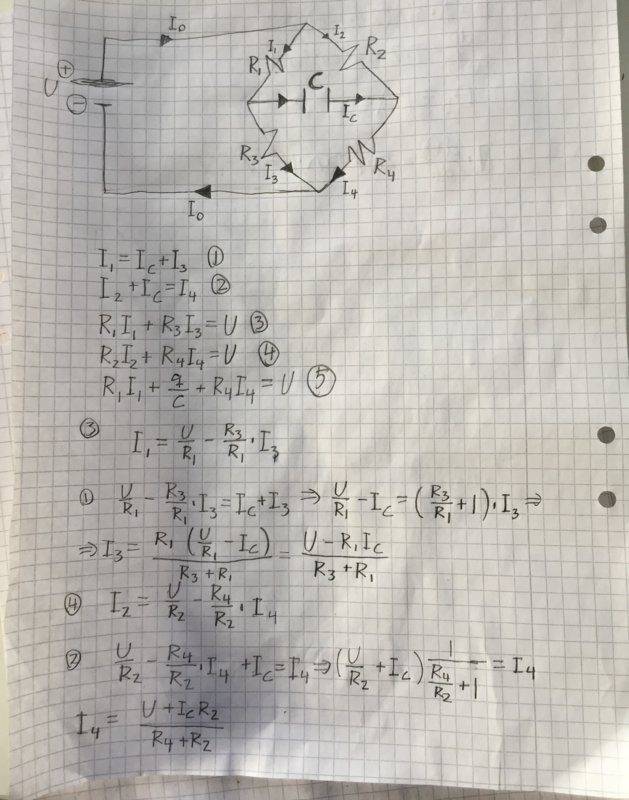 I₀
I₁ I₂
R₁ R₂
U ⊕
⊖
C
I_C
R₃ R₄
I₃ I₄
I₀
I₁ = I_C + I₃ ①
I₂ + I_C = I₄ ②
R₁I₁ + R₃I₃ = U ③
R₂I₂ + R₄I₄ = U ④
R₁I₁ + q/C + R₄I₄ = U ⑤
③ I₁ = U/R₁ - R₃/R₁ · I₃
① U/R₁ - R₃/R₁ · I₃ = I_C + I₃ ⇒ U/R₁ - I_C = (R₃/R₁ + 1) · I₃ ⇒
⇒ I₃ = R₁ (U/R₁ - I_C) / (R₃ + R₁) = (U - R₁I_C) / (R₃ + R₁)
④ I₂ = U/R₂ - R₄/R₂ · I₄
② U/R₂ - R₄/R₂ · I₄ + I_C = I₄ ⇒ (U/R₂ + I_C) 1/(R₄/R₂ + 1) = I₄
I₄ = (U + I_C R₂) / (R₄ + R₂)